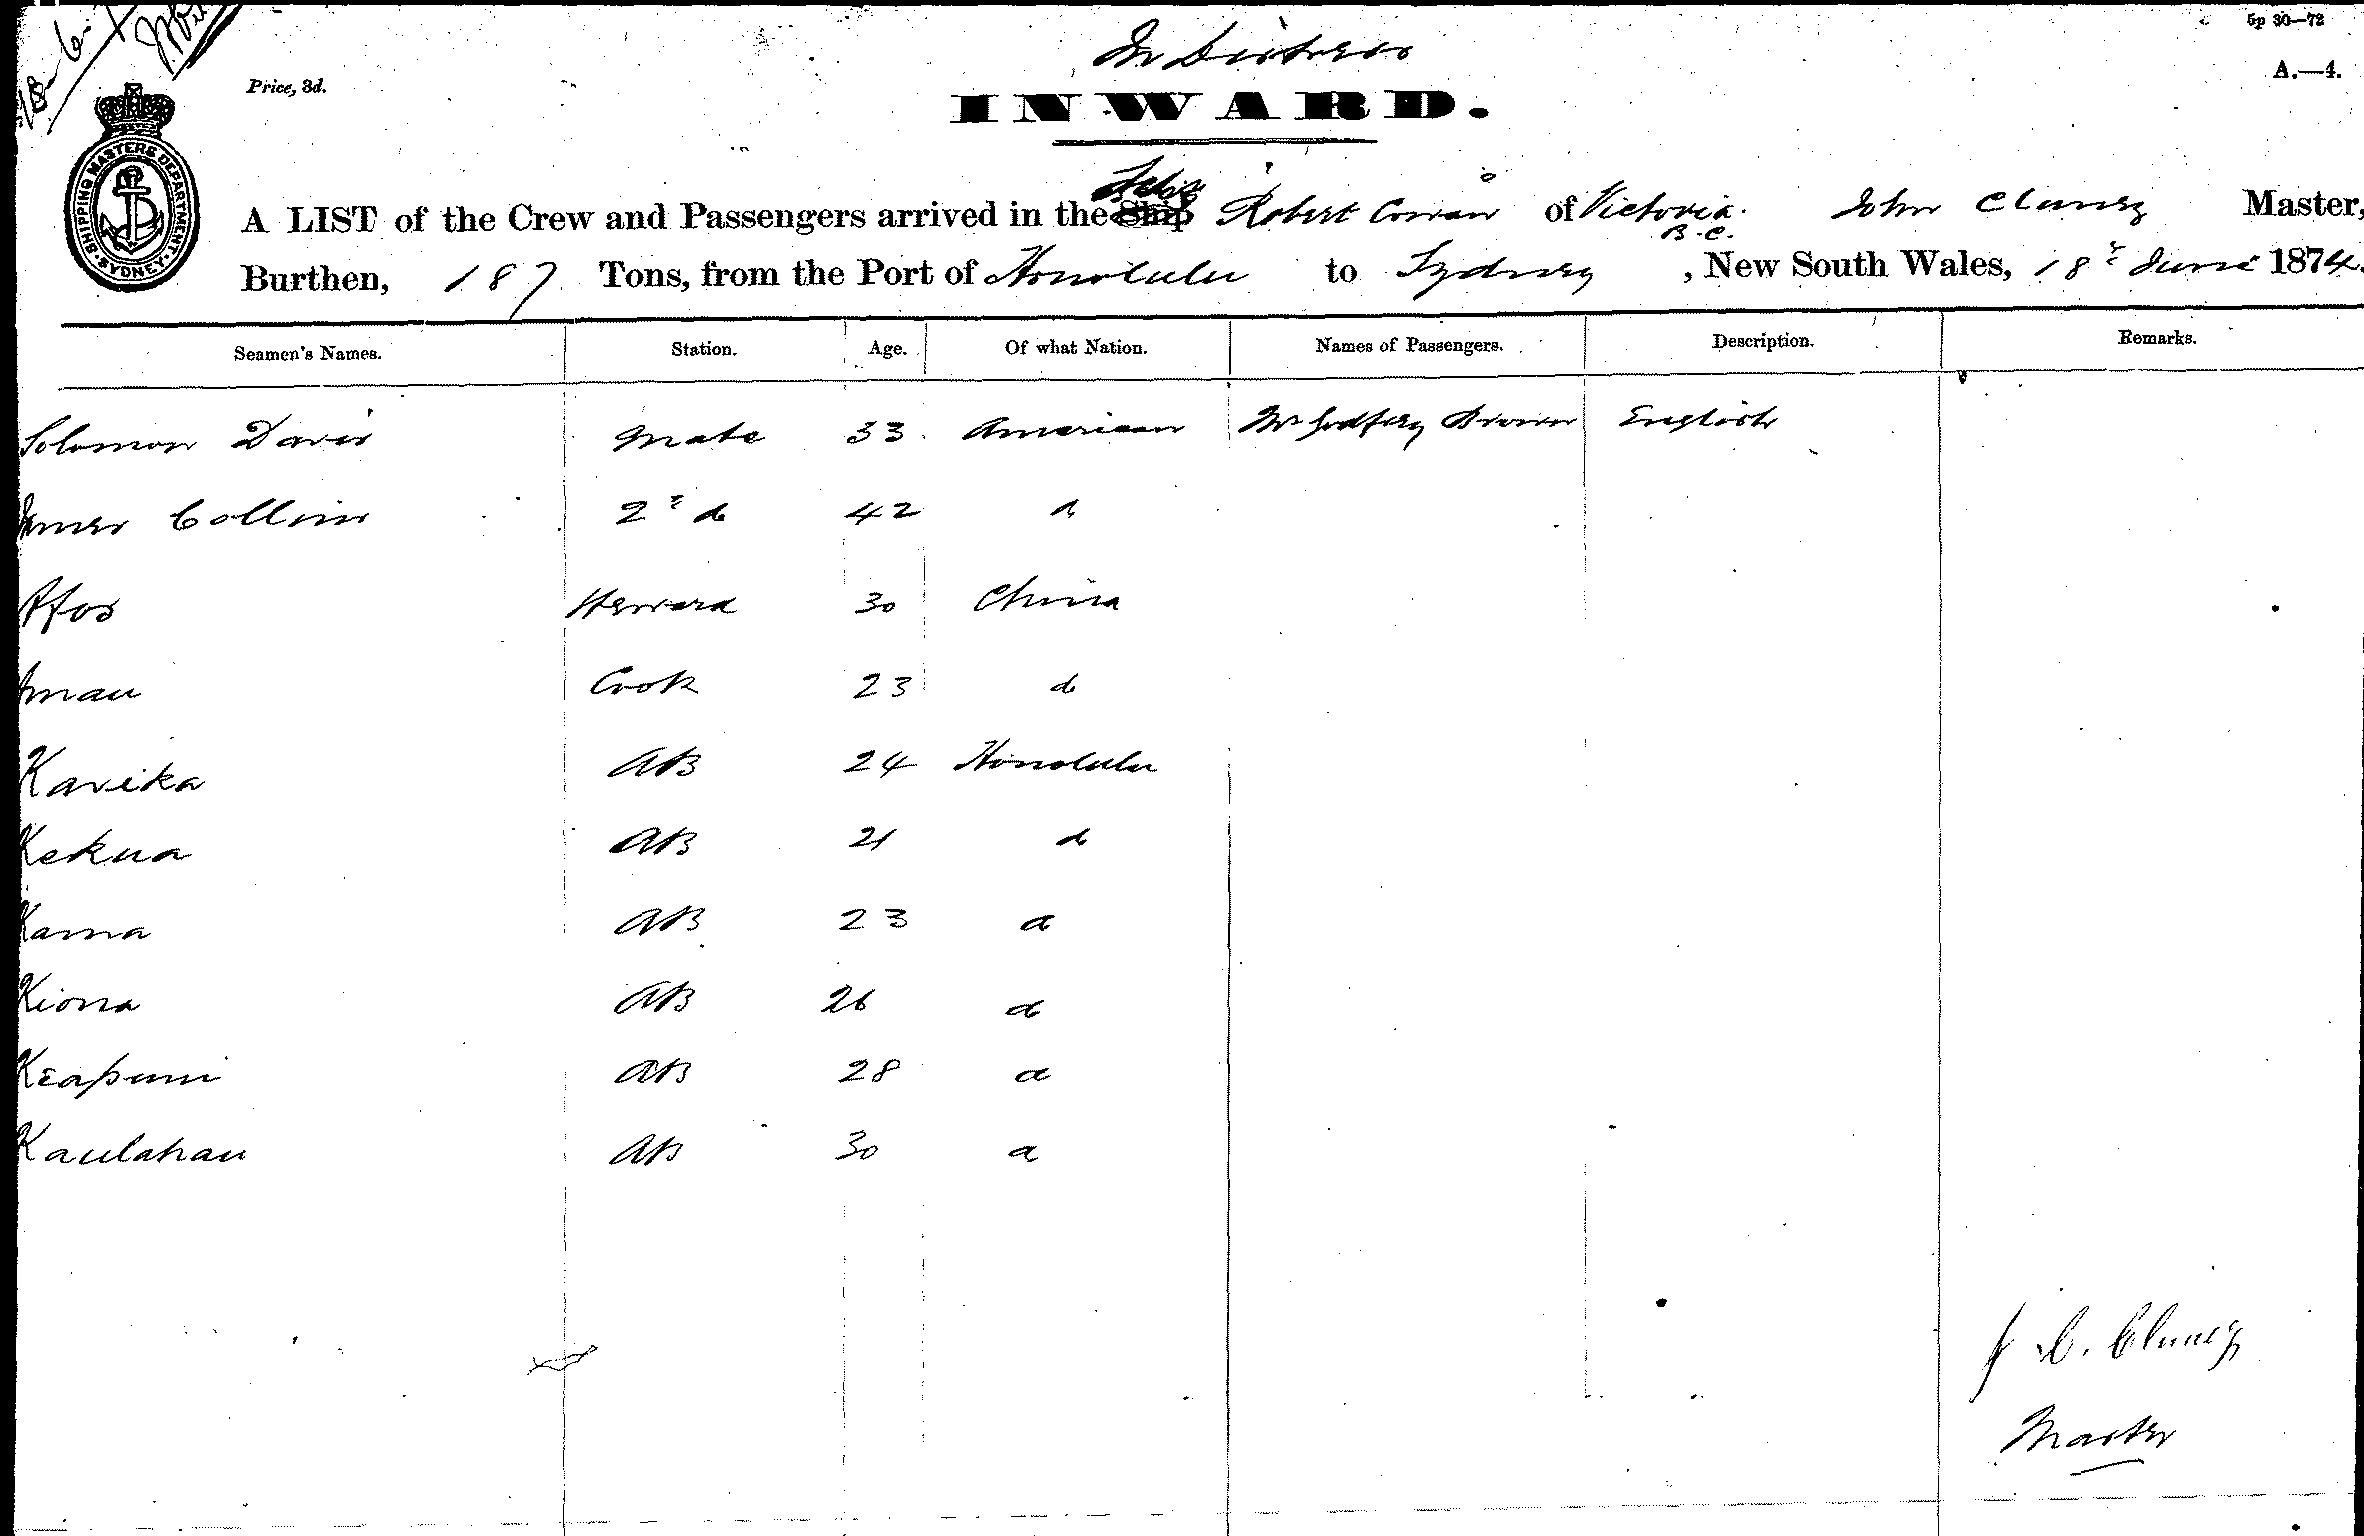 5p 30—72
In Distress
Price, 3d.
A.—4.
INWARD.
SHIPPING MASTERS DEPARTMENT SYDNEY
Schr
A LIST of the Crew and Passengers arrived in the Ship Robert Cowan of Victoria. B.C. John Clunez Master,
Burthen, 187 Tons, from the Port of Honolulu to Sydney, New South Wales, 18th June 1874.
Seamen's Names. Station. Age. Of what Nation. Names of Passengers. Description. Remarks.
Solomon Davis Mate 33 American Mr Godfrey Brown English
James Collins 2nd do 42 do
Afos Steward 30 China
Amau Cook 23 do
Kavika AB 24 Honolulu
Kekua AB 21 do
Kama AB 23 do
Kiona AB 26 do
Keapuni AB 28 do
Kaulahau AB 30 do
J C. Cluney
Master